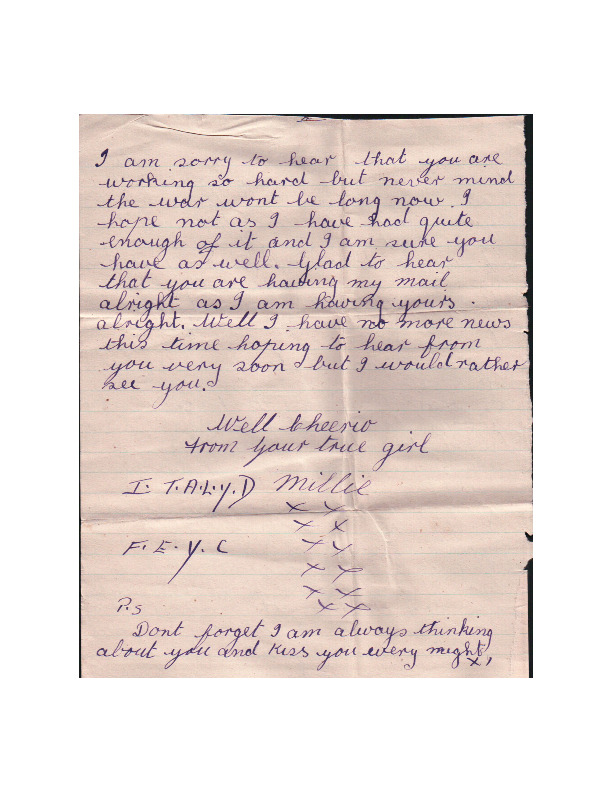 I am sorry to hear that you are
working so hard but never mind
the war wont be long now. I
hope not as I have had quite
enough of it and I am sure you
have as well. Glad to hear
that you are having my mail
alright as I am having yours
alright. Well I have no more news
this time hoping to hear from
you very soon but I would rather
see you.
Well Cheerio
from your true girl
I. T.A.L.Y.D Millie
x x
x x
F.E.Y.C x x
x x
x x
x x
P.S
Dont forget I am always thinking
about you and kiss you every night,
x